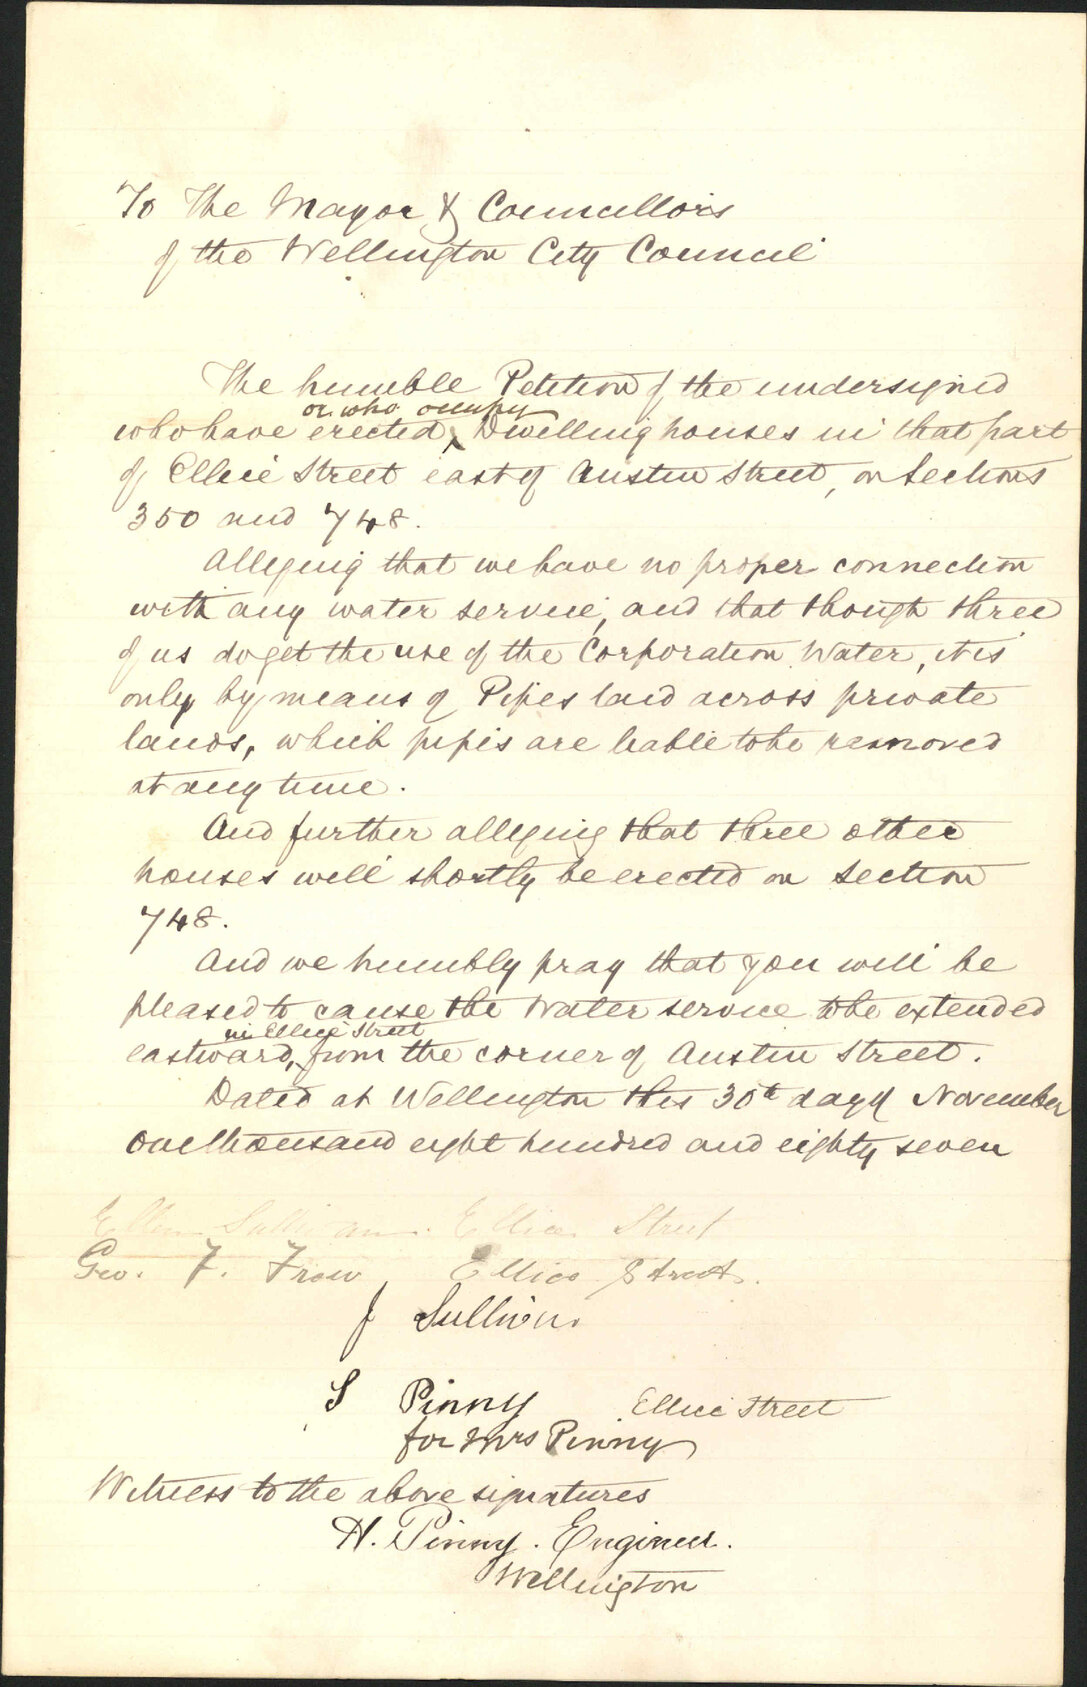 To The Mayor & Councillors
of the Wellington City Council
The humble Petition of the undersigned
or who occupy
who have erected Dwelling houses in that part
of Ellice Street east of Austin Street, on Sections
350 and 748.
Alleging that we have no proper connection
with any water service, and that though three
of us do get the use of the Corporation Water, it is
only by means of Pipes laid across private
lands, which pipes are liable to be removed
at any time.
And further alleging that three other
houses will shortly be erected on Section
748.
And we humbly pray that you will be
pleased to cause the Water service to be extended
in Ellice Street
eastward, from the corner of Austin Street.
Dated at Wellington this 30th day of November
One thousand eight hundred and eighty seven
Ellen Sullivan. Ellice Street
Geo. F. Frow, Ellice Street.
J Sullivan
S Pinny Ellice Street
for Mrs Pinny
Witness to the above signatures
H. Pinny. Engineer.
Wellington